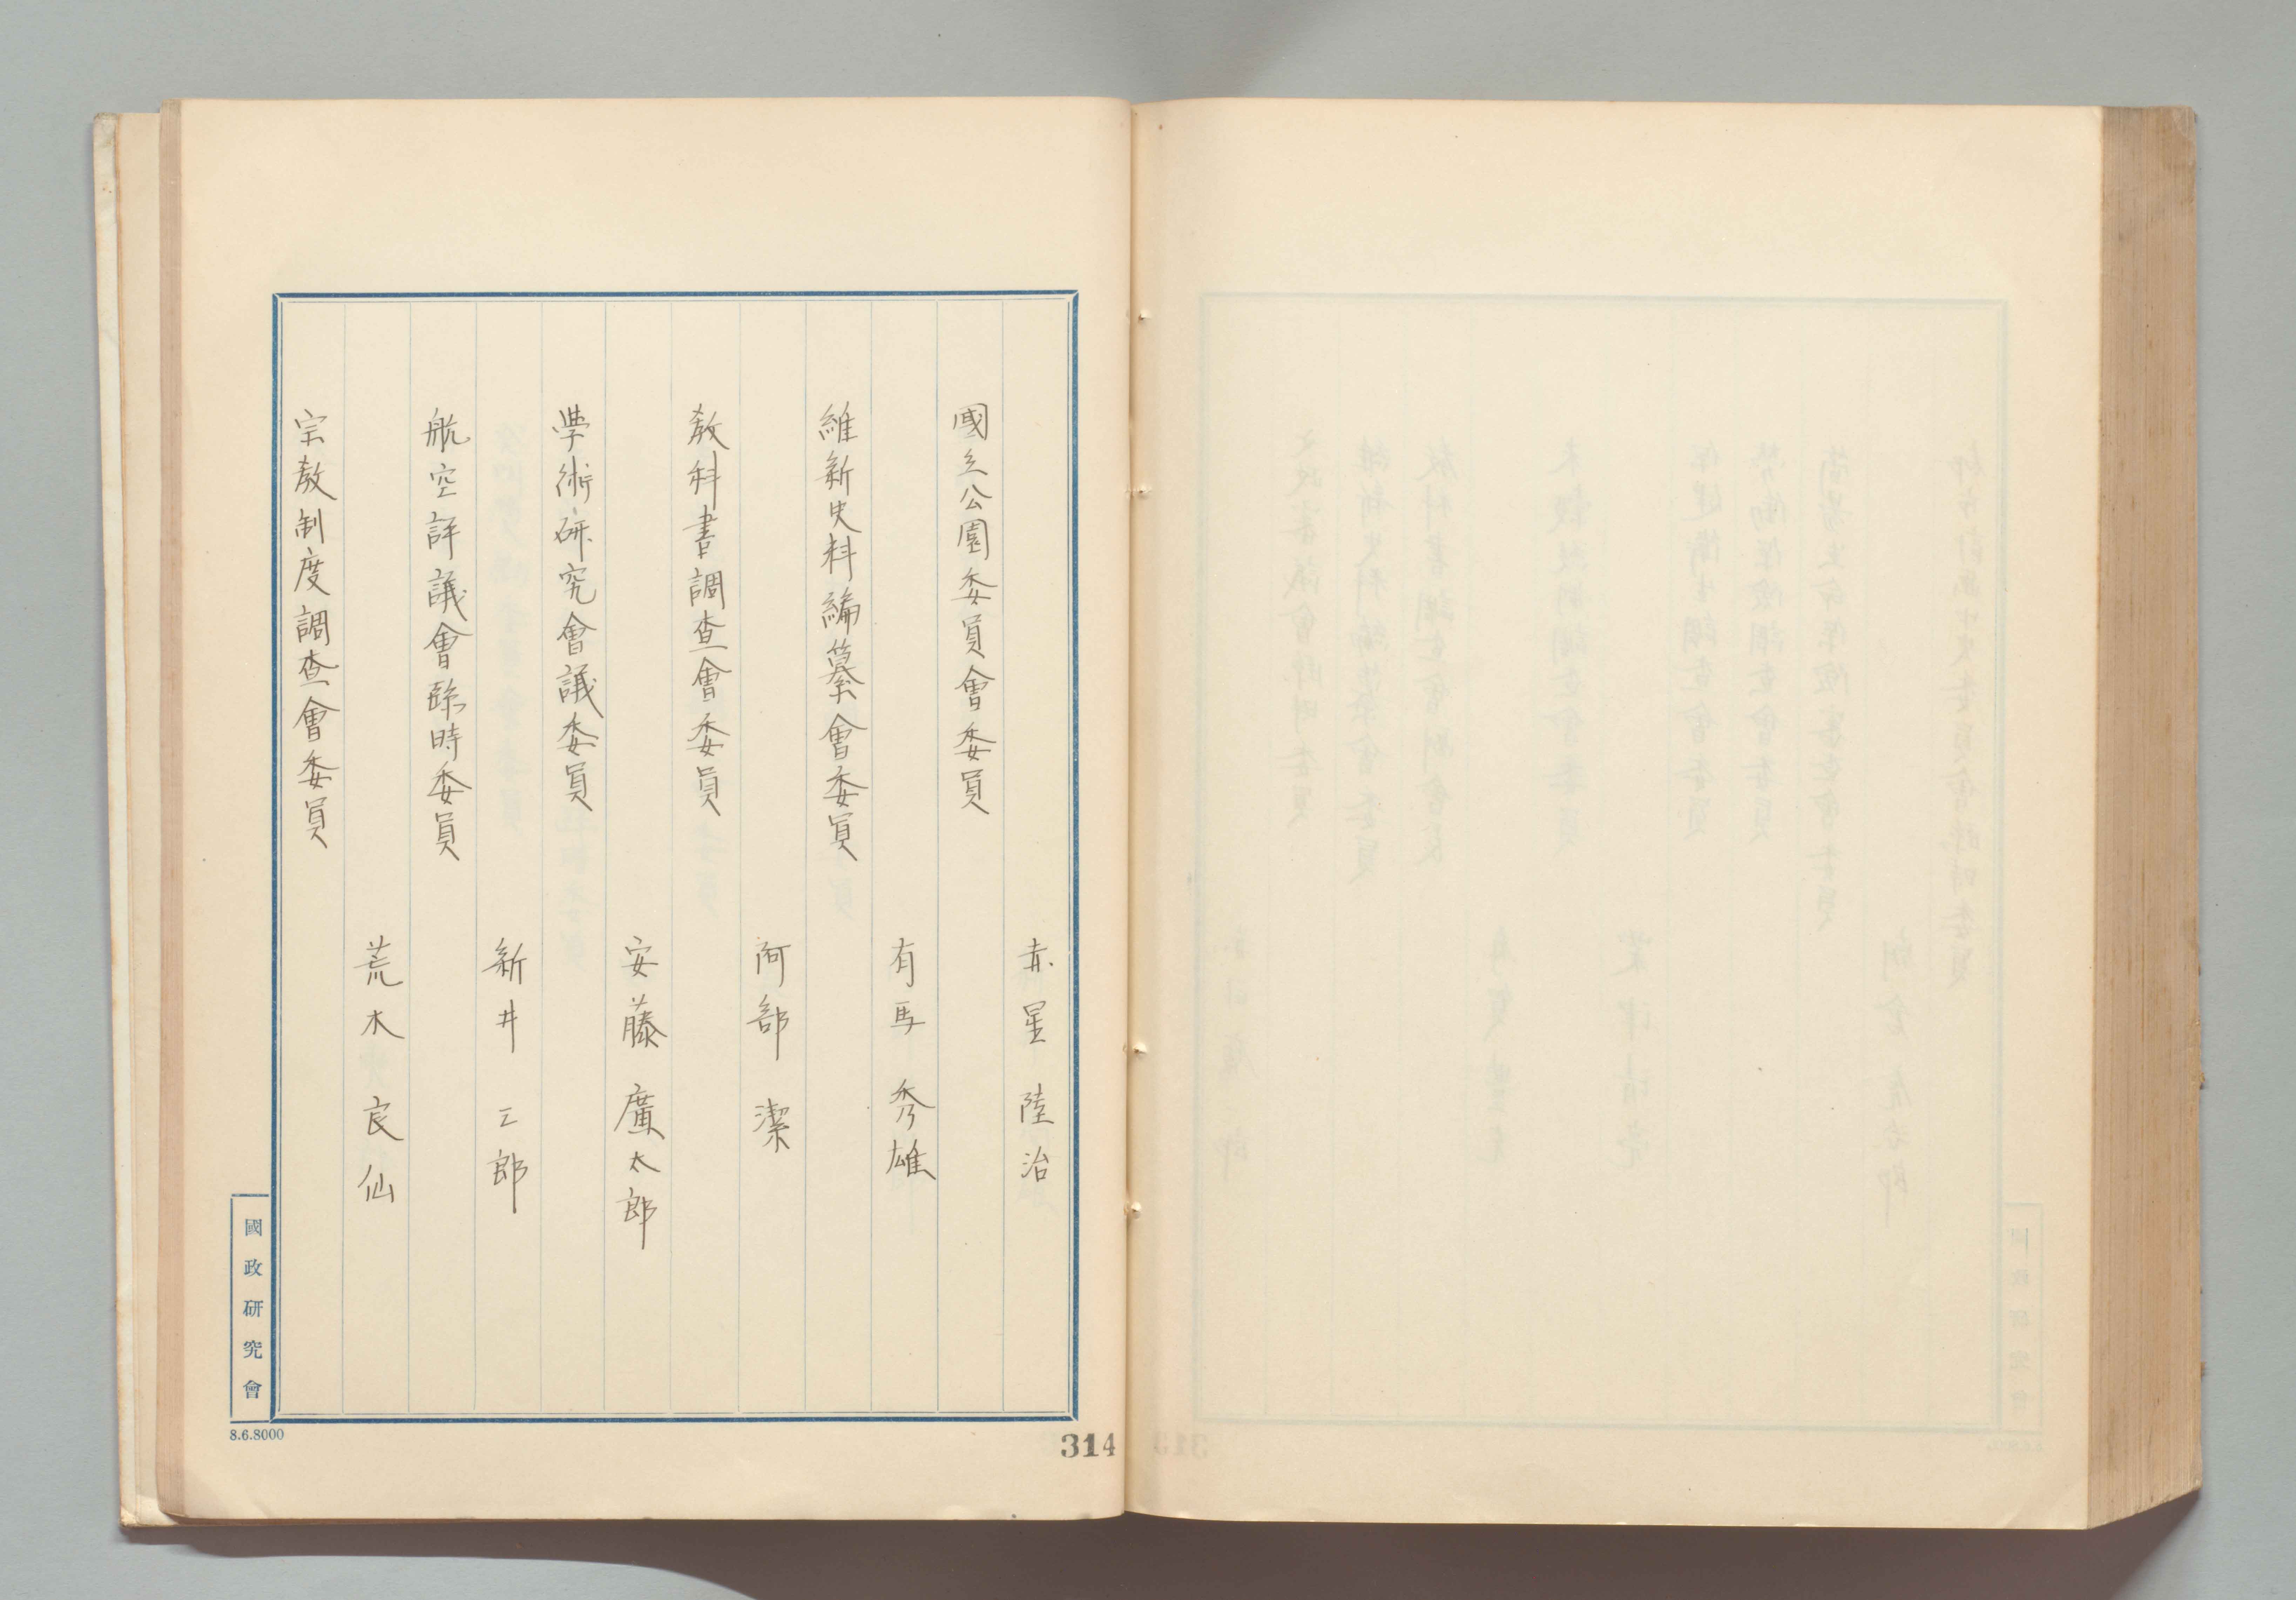 赤星陸治
國立公園委員會委員
有馬秀雄
維新史料編纂會委員
阿部潔
教科書調査會委員
安藤廣太郎
學術研究會議委員
新井三郎
航空評議會臨時委員
荒木良仙
宗教制度調査會委員
國政研究會
8.6.8000
314